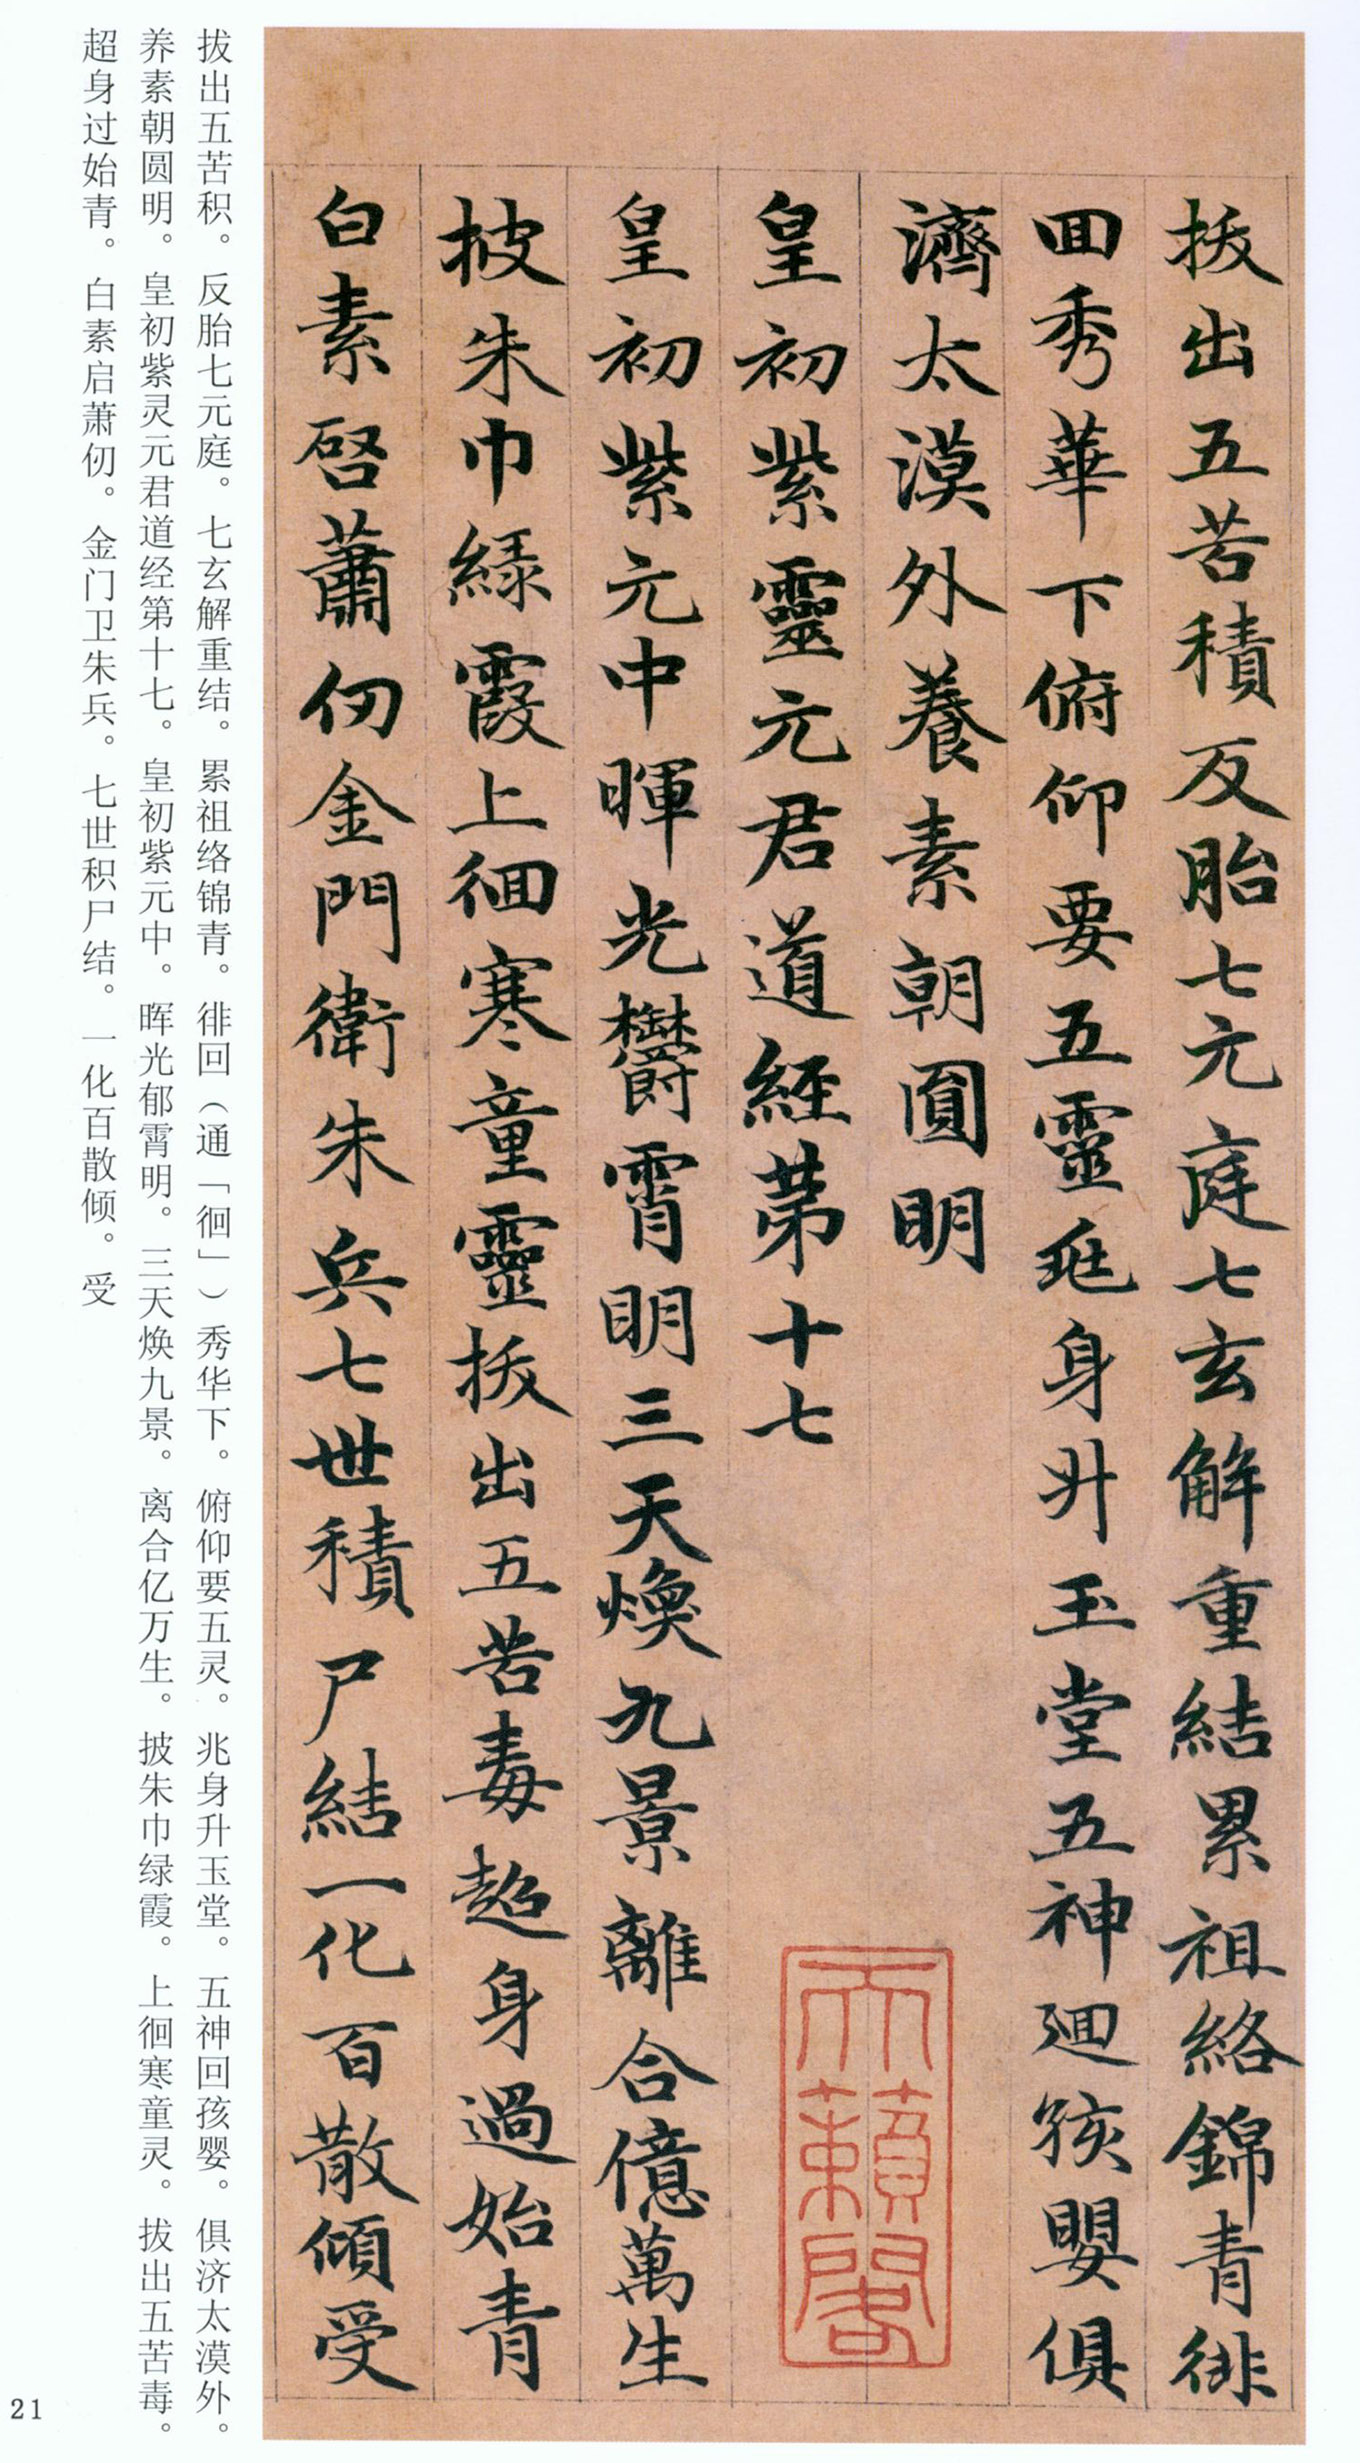 拔出五苦積反胎七元庭七玄解重結累祖絡錦青徘
回秀華下俯仰要五靈𠧞身升玉堂五神迴孩嬰俱
濟太漠外養素朝圓明
皇初紫靈元君道經第十七
皇初紫元中暉光鬱霄明三天煥九景離合億萬生
披朱巾緑霞上徊寒童靈拔出五苦毒超身過始青
白素啓蕭仞金門衛朱兵七世積尸結一化百散傾受
天籟閣
拔出五苦积。反胎七元庭。七玄解重结。累祖络锦青。徘回（通「徊」）秀华下。俯仰要五灵。兆身升玉堂。五神回孩婴。俱济太漠外。
养素朝圆明。皇初紫灵元君道经第十七。皇初紫元中。晖光郁霄明。三天焕九景。离合亿万生。披朱巾绿霞。上徊寒童灵。拔出五苦毒。
超身过始青。白素启萧仞。金门卫朱兵。七世积尸结。一化百散倾。受
21